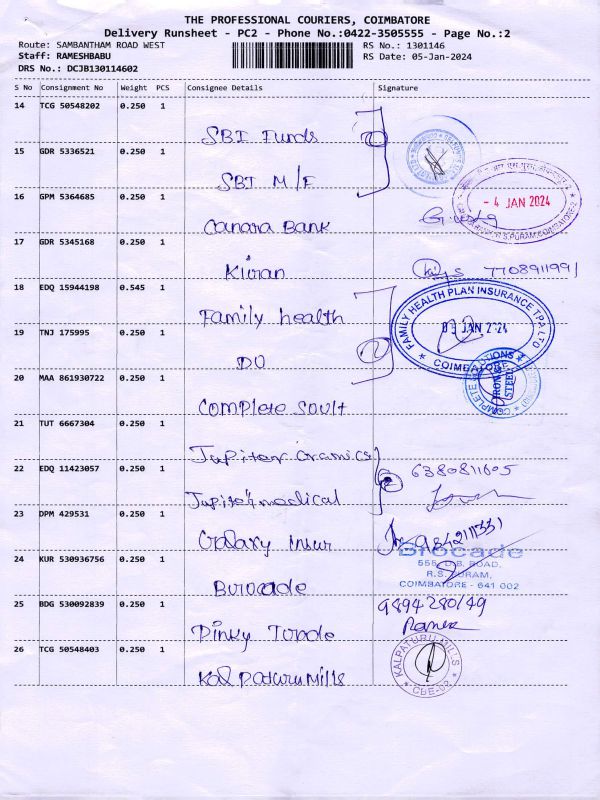 THE PROFESSIONAL COURIERS, COIMBATORE
Delivery Runsheet - PC2 - Phone No.:0422-3505555 - Page No.:2
Route: SAMBANTHAM ROAD WEST RS No.: 1301146
Staff: RAMESHBABU RS Date: 05-Jan-2024
DRS No.: DCJB130114602
S No Consignment No Weight PCS Consignee Details Signature
14 TCG 50548202 0.250 1
SBI Funds
15 GDR 5336521 0.250 1
SBI M/F
16 GPM 5364685 0.250 1
- 4 JAN 2024
R.S.PURAM, COIMBATORE-2
Canara Bank
17 GDR 5345168 0.250 1
Kiran 7708911991
18 EDQ 15944198 0.545 1
FAMILY HEALTH PLAN INSURANCE TPA LTD
JAN 2024
COIMBATORE
Family health
19 TNJ 175995 0.250 1
DO
20 MAA 861930722 0.250 1
COMPLETE
STEEL
Complete soult
21 TUT 6667304 0.250 1
Jupiter ceramics 6380811605
22 EDQ 11423057 0.250 1
Jupiter medical
23 DPM 429531 0.250 1
Galaxy insur 9842111331
24 KUR 530936756 0.250 1
Brocade
555, D.B. ROAD,
R.S. PURAM,
COIMBATORE - 641 002
Burocade
25 BDG 530092839 0.250 1
9894280149
Pinky Trade
26 TCG 50548403 0.250 1
KALPATURU MILLS
CBE-02
Kalpaturu Mills